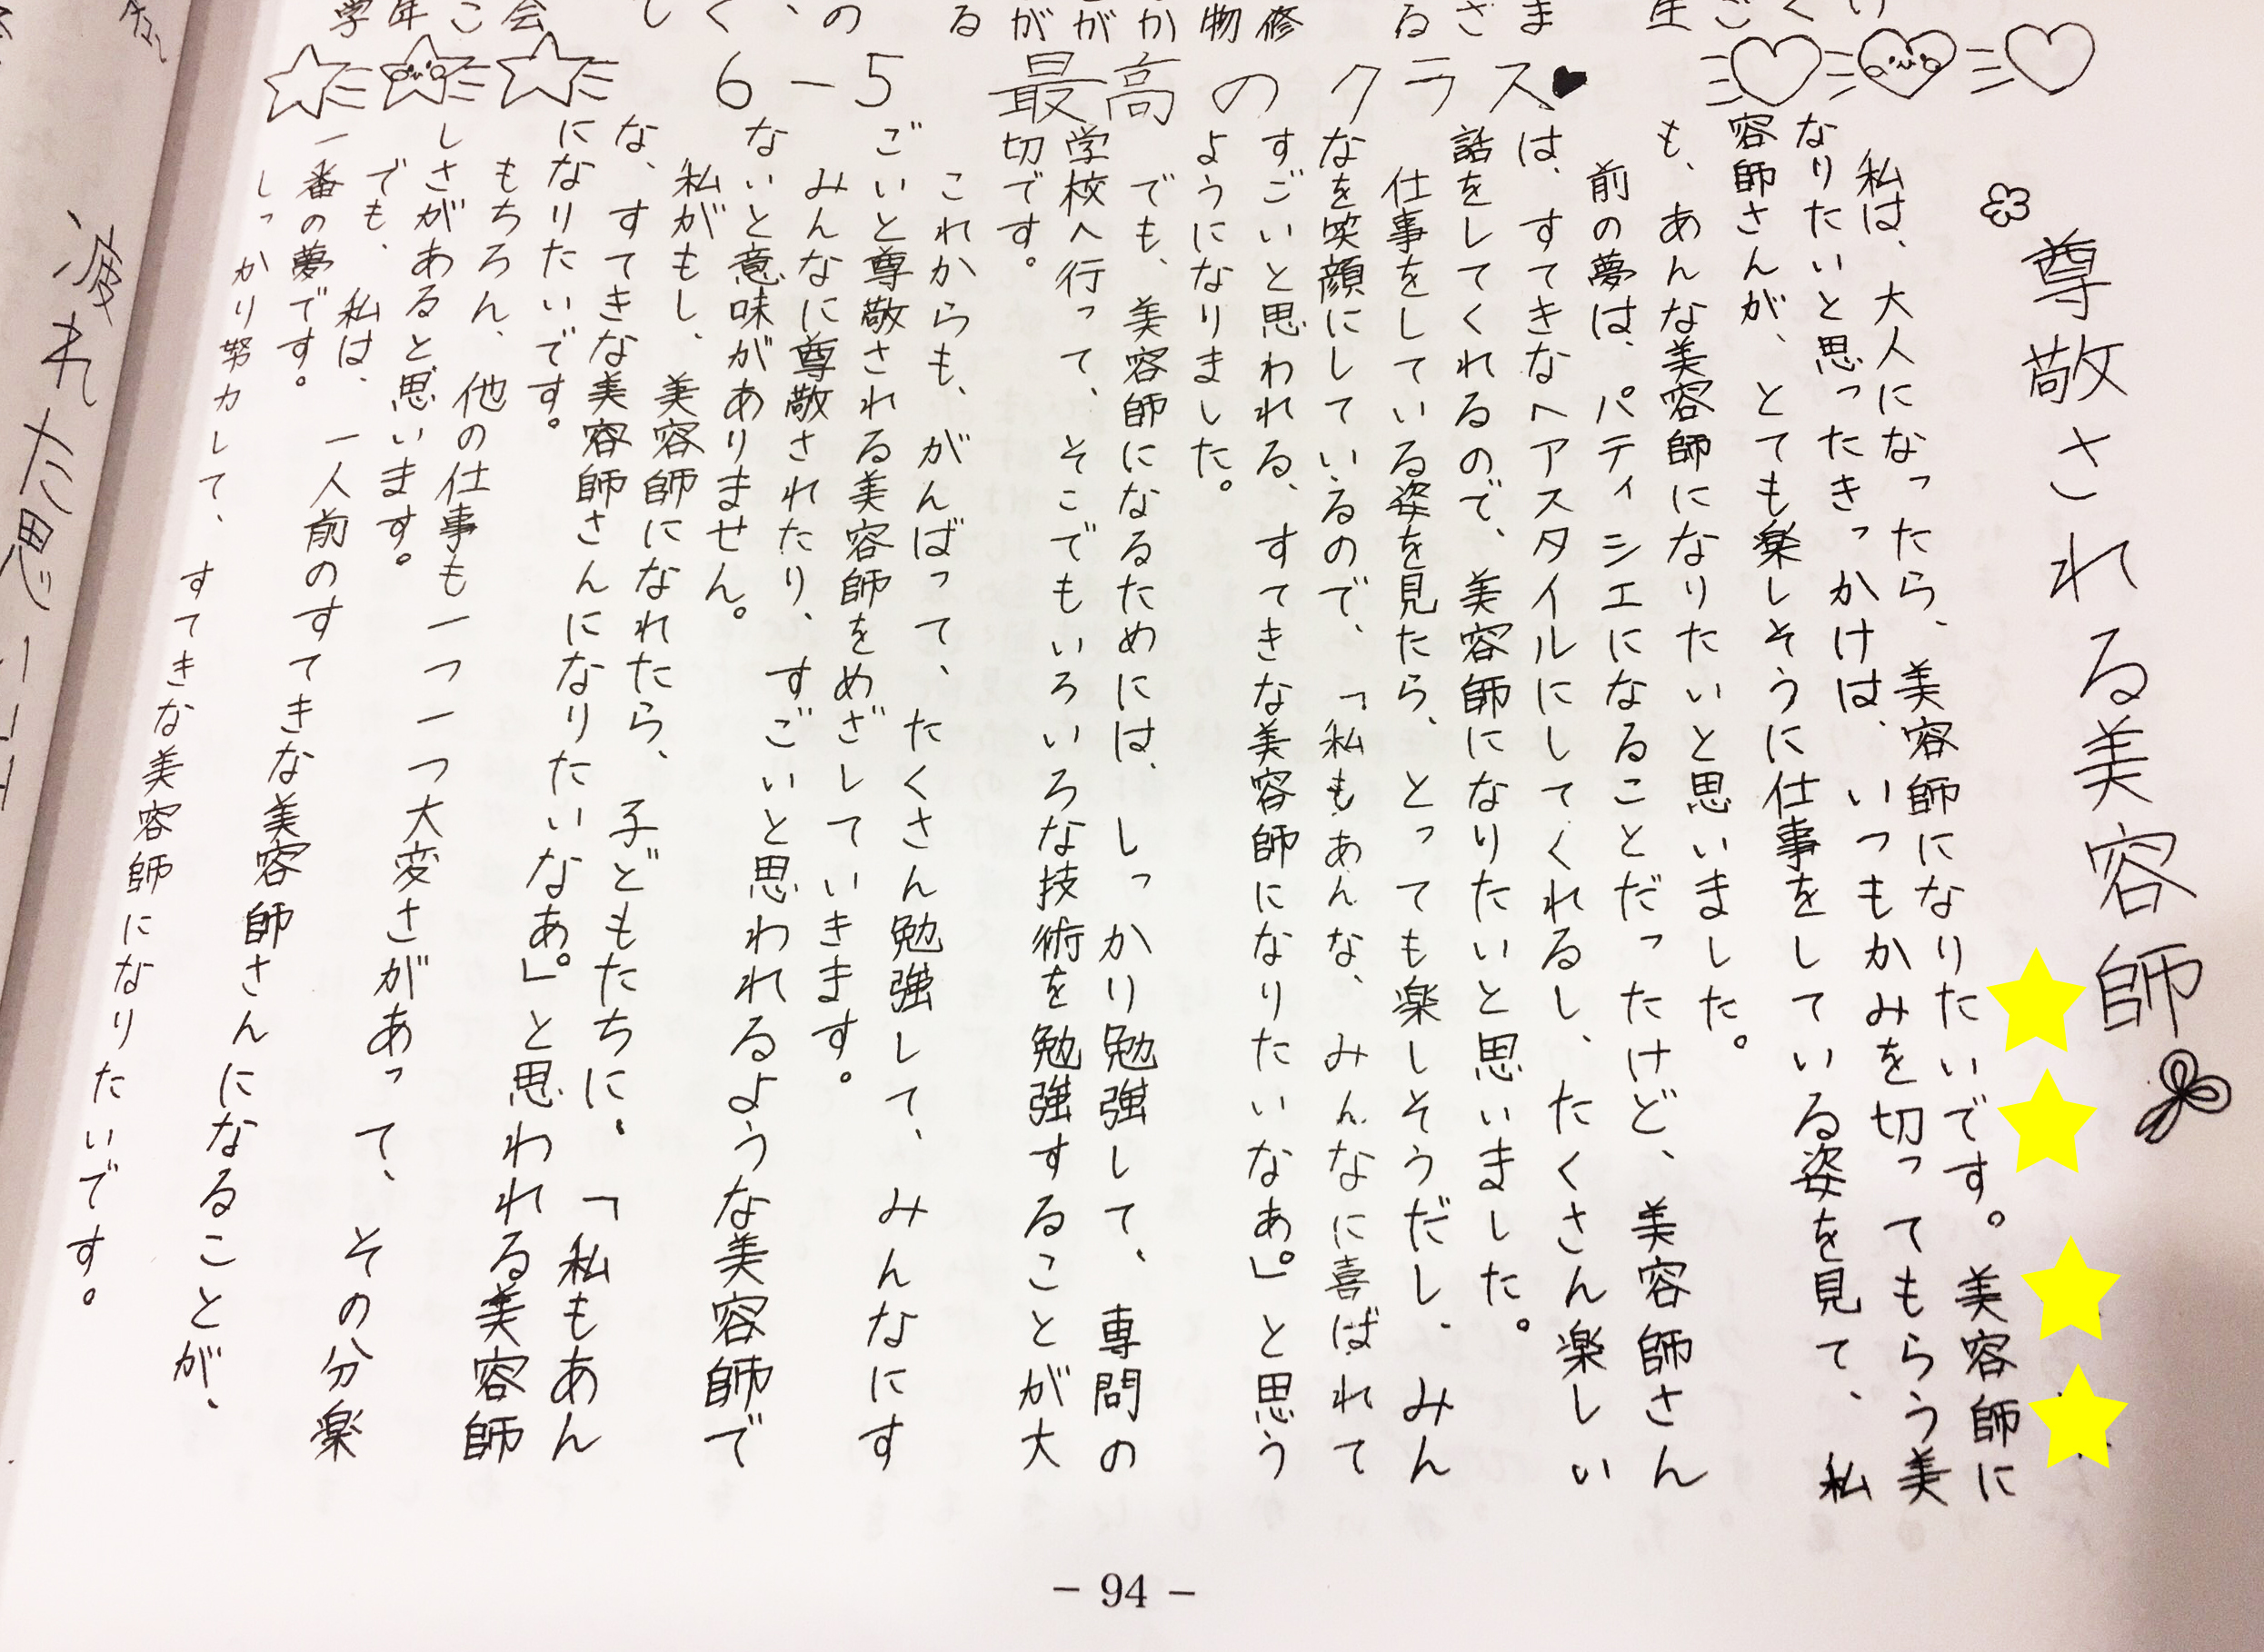 6-5 最高のクラス
尊敬される美容師
私は、大人になったら、美容師になりたいです。美容師に
なりたいと思ったきっかけは、いつもかみを切ってもらう美
容師さんが、とても楽しそうに仕事をしている姿を見て、私
も、あんな美容師になりたいと思いました。
前の夢は、パティシエになることだったけど、美容師さん
は、すてきなヘアスタイルにしてくれるし、たくさん楽しい
話をしてくれるので、美容師になりたいと思いました。
仕事をしている姿を見たら、とっても楽しそうだし、みん
なを笑顔にしているので、「私もあんな、みんなに喜ばれて
すごいと思われる、すてきな美容師になりたいなあ。」と思う
ようになりました。
でも、美容師になるためには、しっかり勉強して、専門の
学校へ行って、そこでもいろいろな技術を勉強することが大
切です。
これからも、がんばって、たくさん勉強して、みんなにす
ごいと尊敬される美容師をめざしていきます。
みんなに尊敬されたり、すごいと思われるような美容師で
ないと意味がありません。
私がもし、美容師になれたら、子どもたちに、「私もあん
な、すてきな美容師さんになりたいなあ。」と思われる美容師
になりたいです。
もちろん、他の仕事も一つ一つ大変さがあって、その分楽
しさがあると思います。
でも、私は、一人前のすてきな美容師さんになることが、
一番の夢です。
しっかり努力して、すてきな美容師になりたいです。
- 94 -